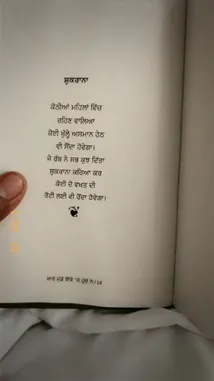 ਸ਼ੁਕਰਾਨਾ
ਕੋਠੀਆਂ ਮਹਿਲਾਂ ਵਿੱਚ
ਰਹਿਣ ਵਾਲਿਆ
ਕੋਈ ਖੁੱਲ੍ਹੇ ਅਸਮਾਨ ਹੇਠ
ਵੀ ਸੌਂਦਾ ਹੋਵੇਗਾ।
ਜੇ ਰੱਬ ਨੇ ਸਭ ਕੁਝ ਦਿੱਤਾ
ਸ਼ੁਕਰਾਨਾ ਕਰਿਆ ਕਰ
ਕੋਈ ਦੋ ਵਖਤ ਦੀ
ਰੋਟੀ ਲਈ ਵੀ ਰੋਂਦਾ ਹੋਵੇਗਾ।
14